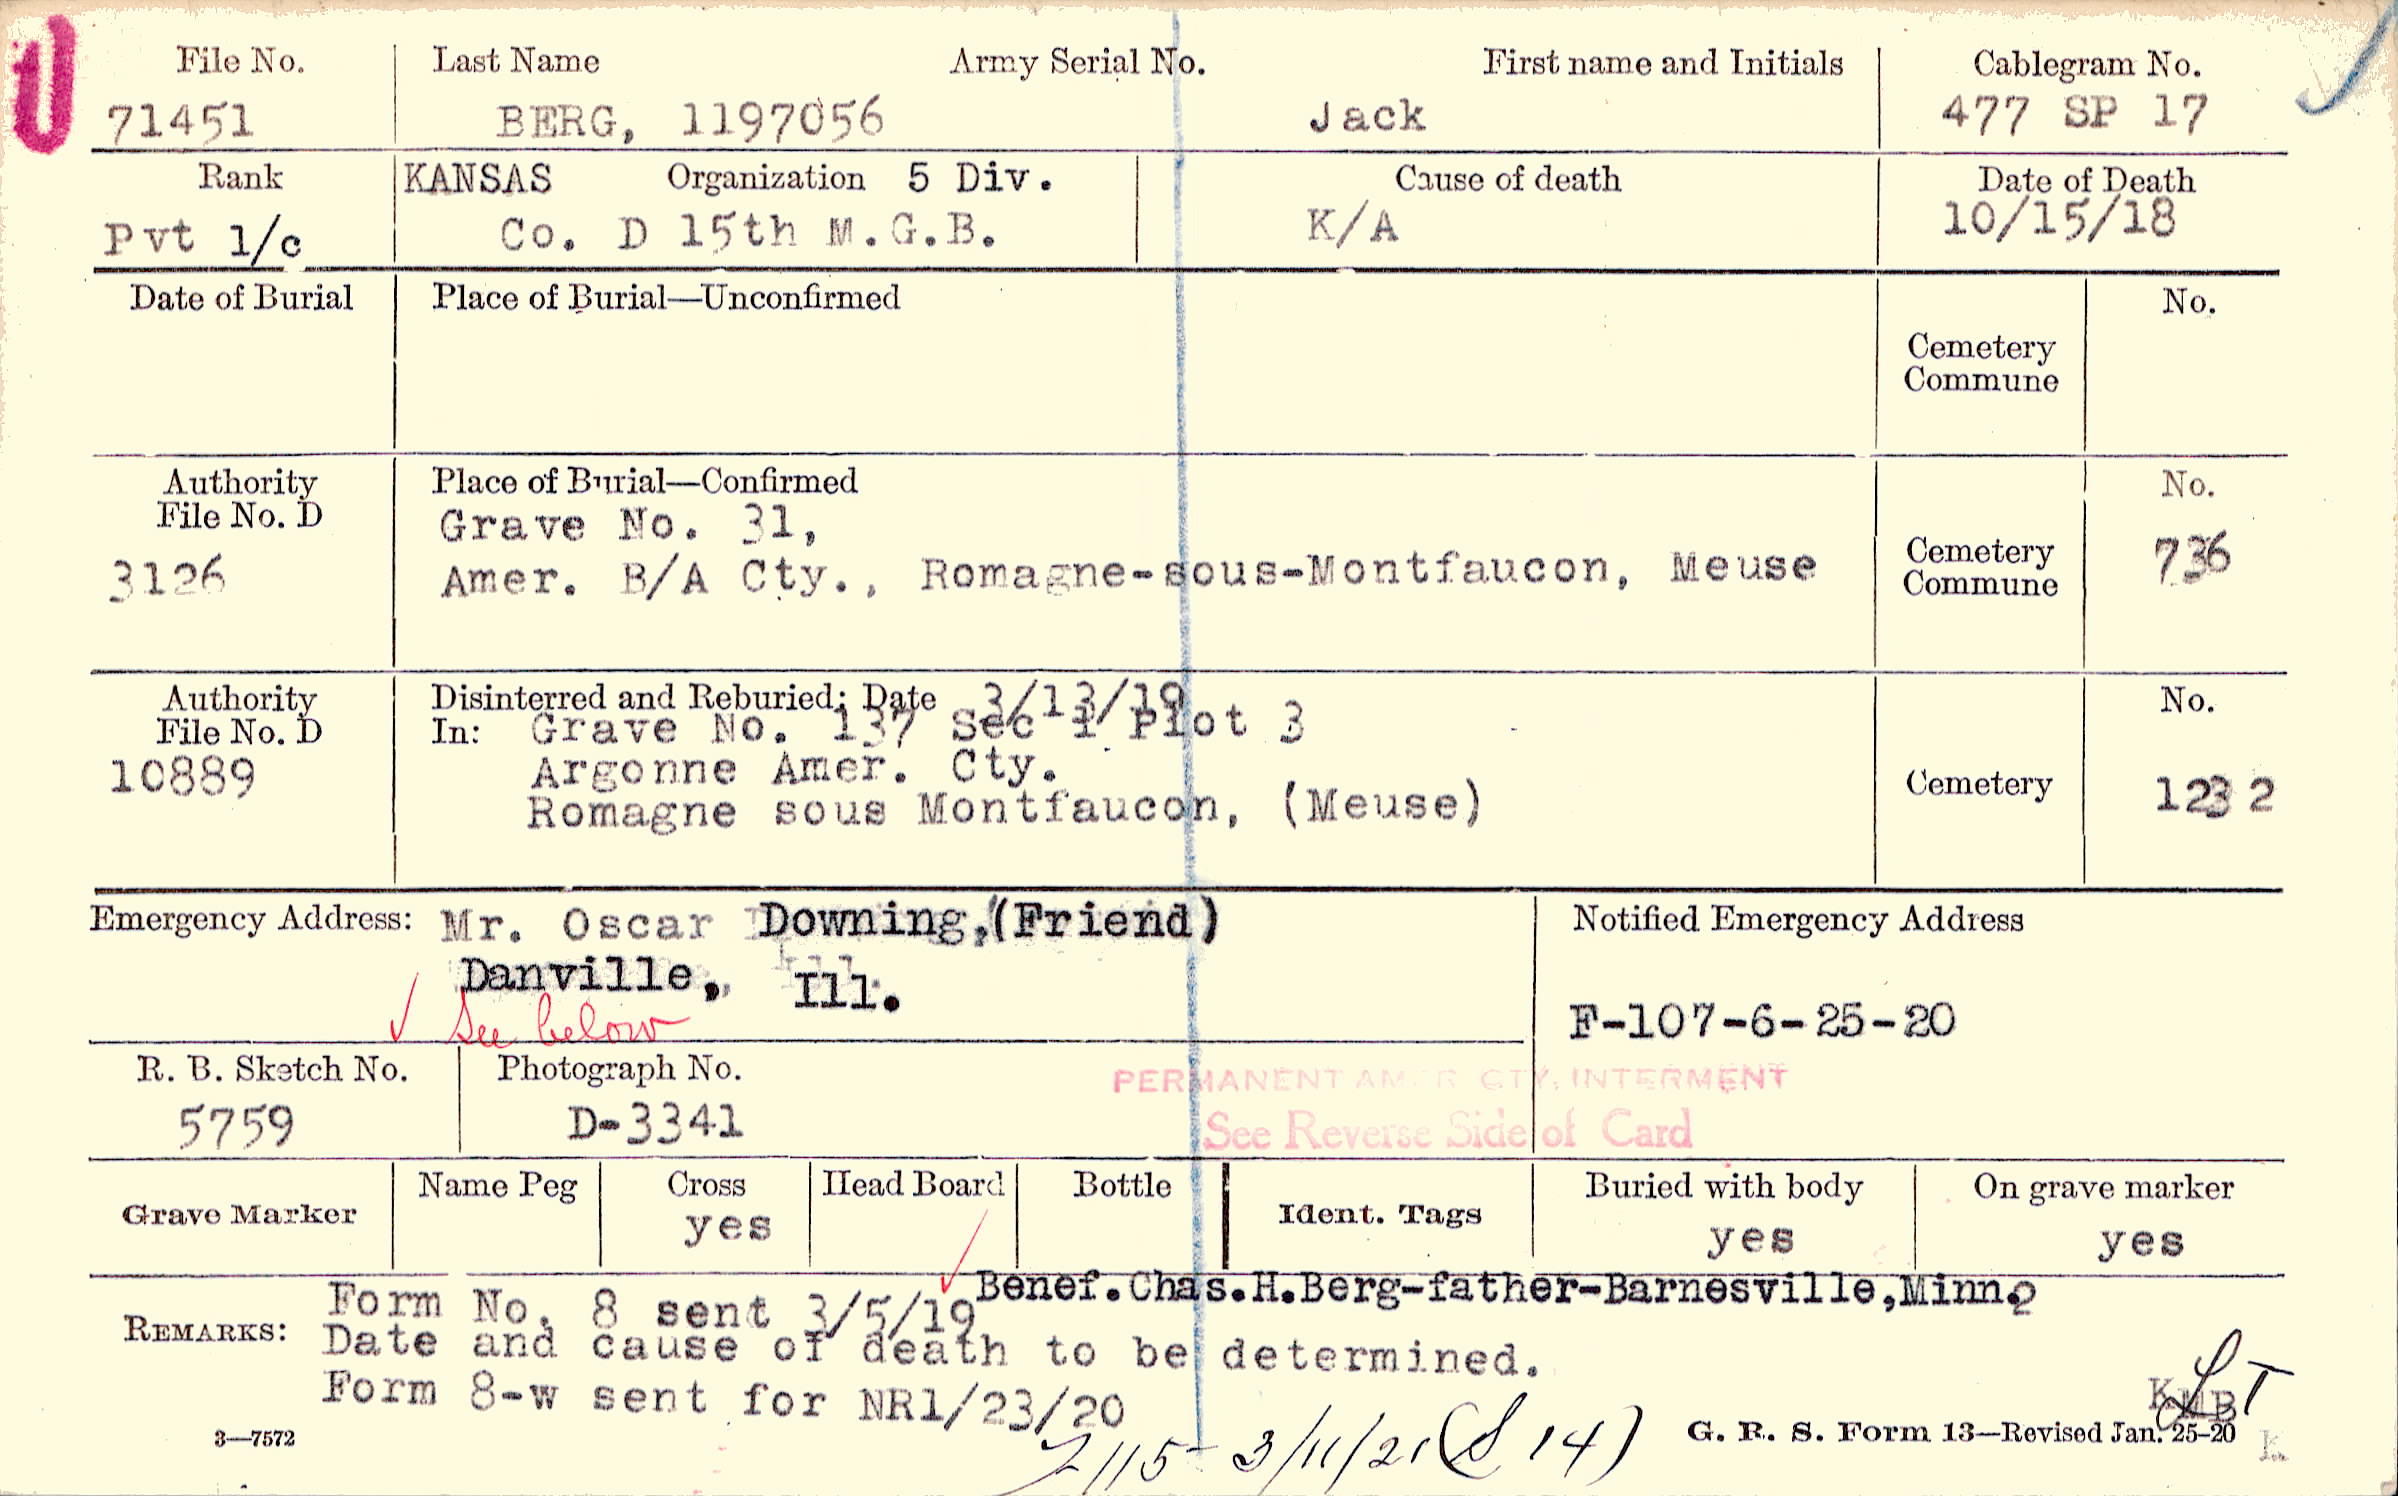 File No. Last Name Army Serial No. First name and Initials Cablegram No.
71451 BERG, 1197056 Jack 477 SP 17
Rank KANSAS Organization 5 Div. Cause of death Date of Death
Pvt 1/c Co. D 15th M.G.B. K/A 10/15/18
Date of Burial Place of Burial—Unconfirmed No.
Cemetery
Commune
Authority Place of Burial—Confirmed No.
File No. D Grave No. 31,
3126 Amer. B/A Cty., Romagne-sous-Montfaucon, Meuse Cemetery 736
Commune
Authority Disinterred and Reburied: Date 3/13/19 No.
File No. D In: Grave No. 137 Sec 1 Plot 3
10889 Argonne Amer. Cty. Cemetery 1232
Romagne sous Montfaucon, (Meuse)
Emergency Address: Mr. Oscar Downing,(Friend) Notified Emergency Address
Danville, Ill.
See below F-107-6-25-20
R. B. Sketch No. Photograph No. PERMANENT AMER CTY. INTERMENT
5759 D-3341 See Reverse Side of Card
Grave Marker Name Peg Cross Head Board Bottle Ident. Tags Buried with body On grave marker
yes yes yes
Benef.Chas.H.Berg-father-Barnesville,Minn.
REMARKS: Form No. 8 sent 3/5/19
Date and cause of death to be determined.
Form 8-w sent for NR1/23/20
3—7572 3/11/21 (S 14) G. R. S. Form 13—Revised Jan. 25-20